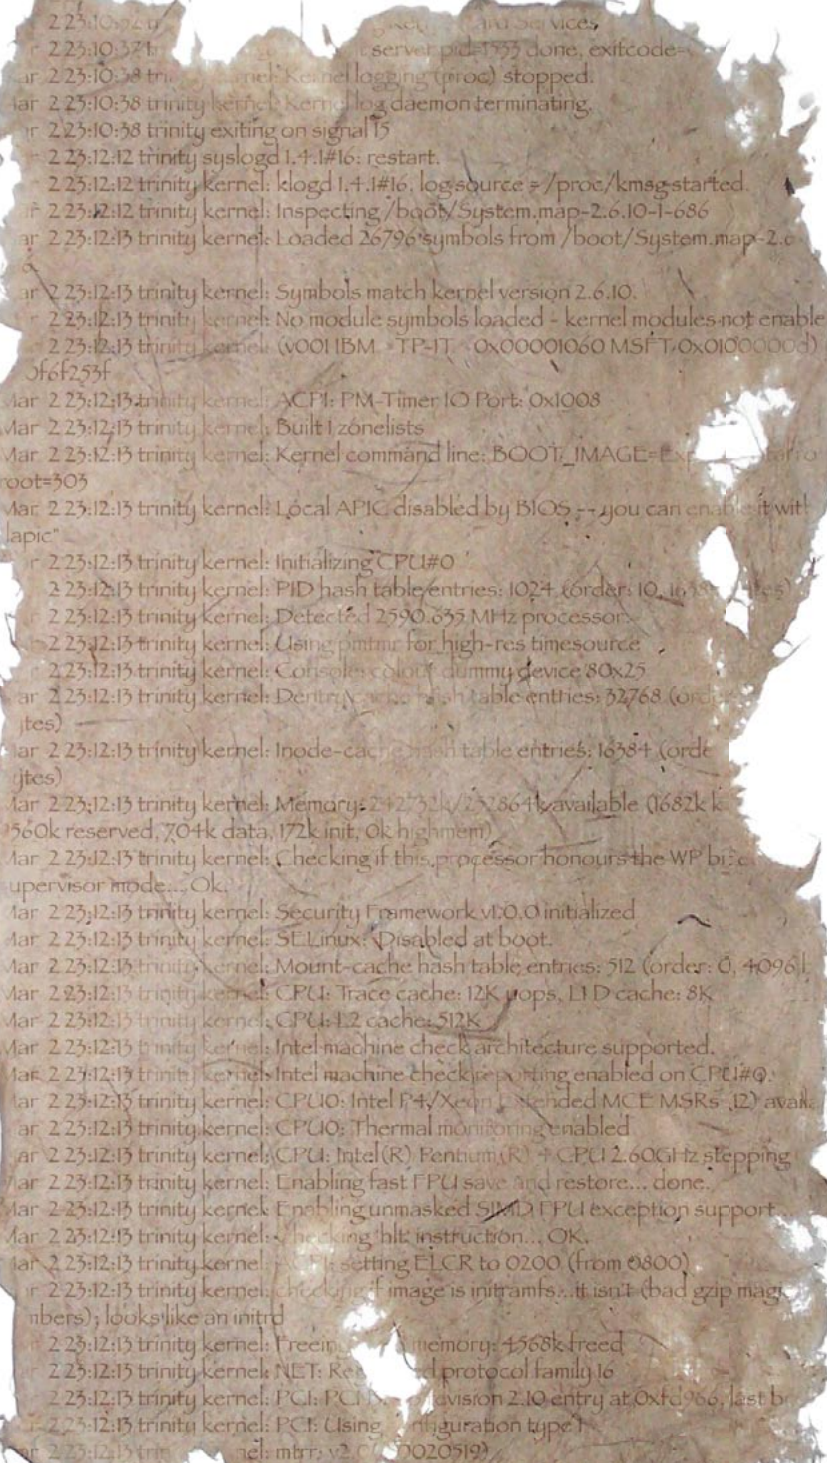 2 23:10:32 Services,
2 23:10:37 server pid=1535 done, exitcode=
ar 2 23:10:38 Kernel logging (proc) stopped.
ar 2 23:10:38 trinity kernel: Kernel log daemon terminating.
r 2 23:10:38 trinity exiting on signal 15
r 2 23:12:12 trinity syslogd 1.4.1#16: restart.
2 23:12:12 trinity kernel: klogd 1.4.1#16, log source = /proc/kmsg started.
r 2 23:12:12 trinity kernel: Inspecting /boot/System.map-2.6.10-1-686
ar 2 23:12:13 trinity kernel: Loaded 26796 symbols from /boot/System.map-2.6
6.
ar 2 23:12:13 trinity kernel: Symbols match kernel version 2.6.10.
2 23:12:13 trinity kernel: No module symbols loaded - kernel modules not enable
2 23:12:13 trinity kernel: (v001 IBM TP-1T 0x00001060 MSFT 0x0100000d)
0f6f253f
Mar 2 23:12:13 trinity kernel: ACPI: PM-Timer IO Port: 0x1008
Mar 2 23:12:13 trinity kernel: Built 1 zonelists
Mar 2 23:12:13 trinity kernel: Kernel command line: BOOT_IMAGE=Exp ro
root=303
Mar 2 23:12:13 trinity kernel: Local APIC disabled by BIOS -- you can enable it with
lapic"
r 2 23:12:13 trinity kernel: Initializing CPU#0
2 23:12:13 trinity kernel: PID hash table entries: 1024 (order: 10, 16384 bytes)
2 23:12:13 trinity kernel: Detected 2590.635 MHz processor.
2 23:12:13 trinity kernel: Using pmtmr for high-res timesource
2 23:12:13 trinity kernel: Console: colour dummy device 80x25
ar 2 23:12:13 trinity kernel: Dentry cache hash table entries: 32768 (order
ytes)
ar 2 23:12:13 trinity kernel: Inode-cache hash table entries: 16384 (orde
ytes)
Mar 2 23:12:13 trinity kernel: Memory: 242732k/252864k available (1682k k
9560k reserved, 704k data, 172k init, 0k highmem)
Mar 2 23:12:13 trinity kernel: Checking if this processor honours the WP bit e
upervisor mode... Ok.
Mar 2 23:12:13 trinity kernel: Security Framework v1.0.0 initialized
Mar 2 23:12:13 trinity kernel: SELinux: Disabled at boot.
Mar 2 23:12:13 trinity kernel: Mount-cache hash table entries: 512 (order: 0, 4096 b
Mar 2 23:12:13 trinity kernel: CPU: Trace cache: 12K uops, L1 D cache: 8K
Mar 2 23:12:13 trinity kernel: CPU: L2 cache: 512K
Mar 2 23:12:13 trinity kernel: Intel machine check architecture supported.
Mar 2 23:12:13 trinity kernel: Intel machine check reporting enabled on CPU#0.
Mar 2 23:12:13 trinity kernel: CPU0: Intel P4/Xeon Extended MCE MSRs (12) availa
ar 2 23:12:13 trinity kernel: CPU0: Thermal monitoring enabled
Mar 2 23:12:13 trinity kernel: CPU: Intel(R) Pentium(R) 4 CPU 2.60GHz stepping
Mar 2 23:12:13 trinity kernel: Enabling fast FPU save and restore... done.
Mar 2 23:12:13 trinity kernel: Enabling unmasked SIMD FPU exception support...
Mar 2 23:12:13 trinity kernel: Checking 'hlt' instruction... OK.
Mar 2 23:12:13 trinity kernel: ACPI: setting ELCR to 0200 (from 0800)
r 2 23:12:13 trinity kernel: checking if image is initramfs...it isn't (bad gzip magic
mbers); looks like an initrd
2 23:12:13 trinity kernel: Freeing memory: 4568k freed
2 23:12:13 trinity kernel: NET: Re d protocol family 16
2 23:12:13 trinity kernel: PCI: PCI revision 2.10 entry at 0xfd966, last b
r 2 23:12:13 trinity kernel: PCI: Using configuration type 1
ar 2 23:12:13 trin nel: mtrr: v2.0 (20020519)